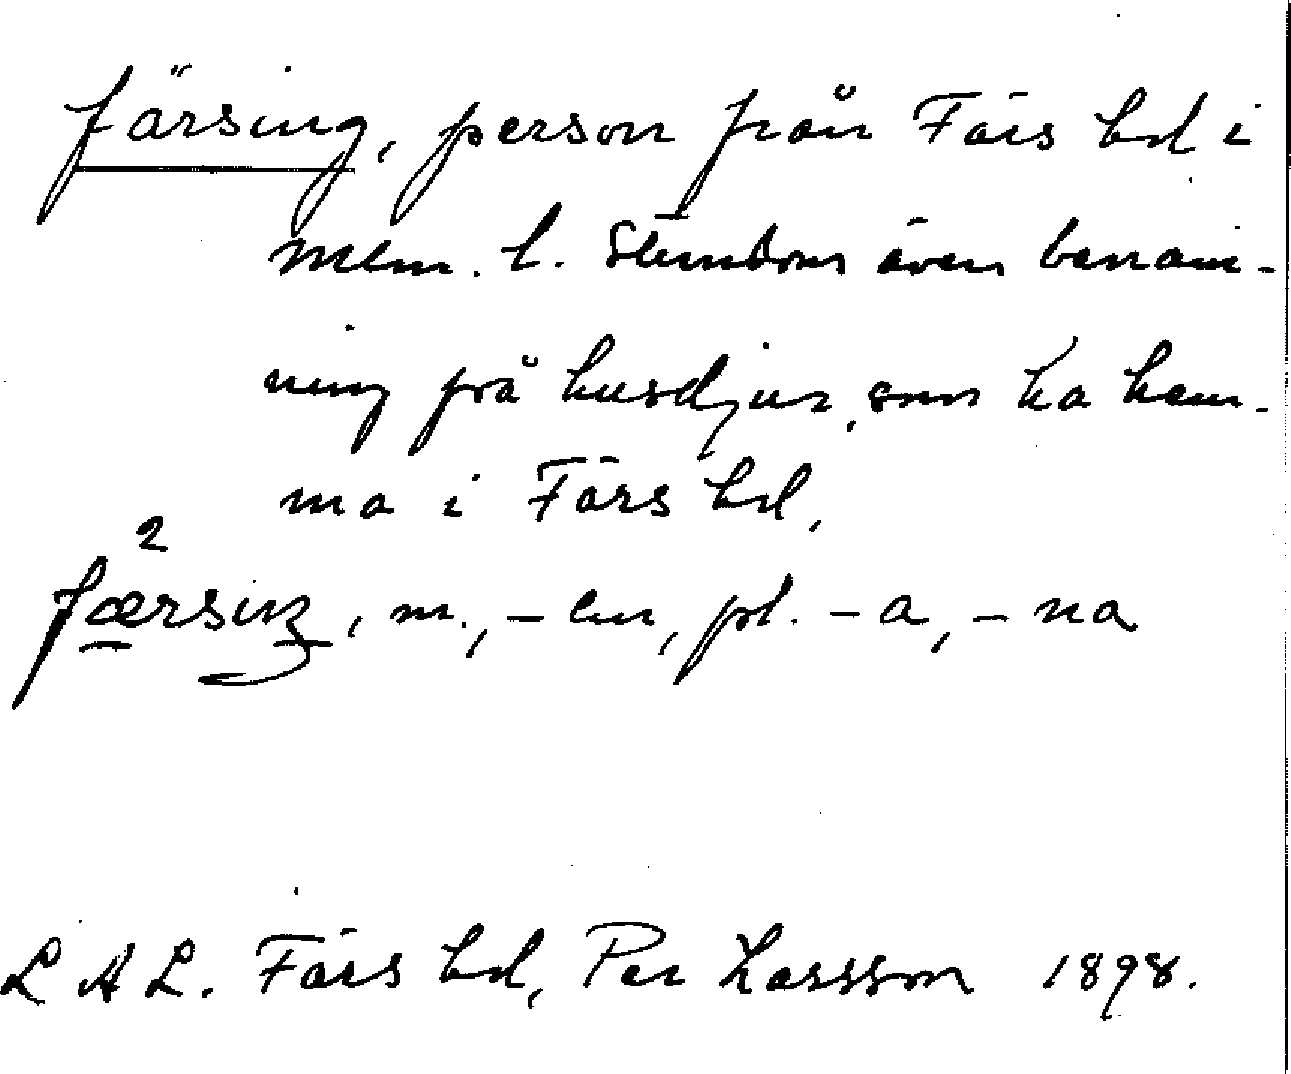 färsing, person från Färs hd i
Mlm. l. Stundom även benäm-
ning på husdjur, som ha hem-
ma i Färs hd,
2
færsiŋ, m., -en, pl. -a, -na
L A L. Färs hd, Per Larsson 1898.